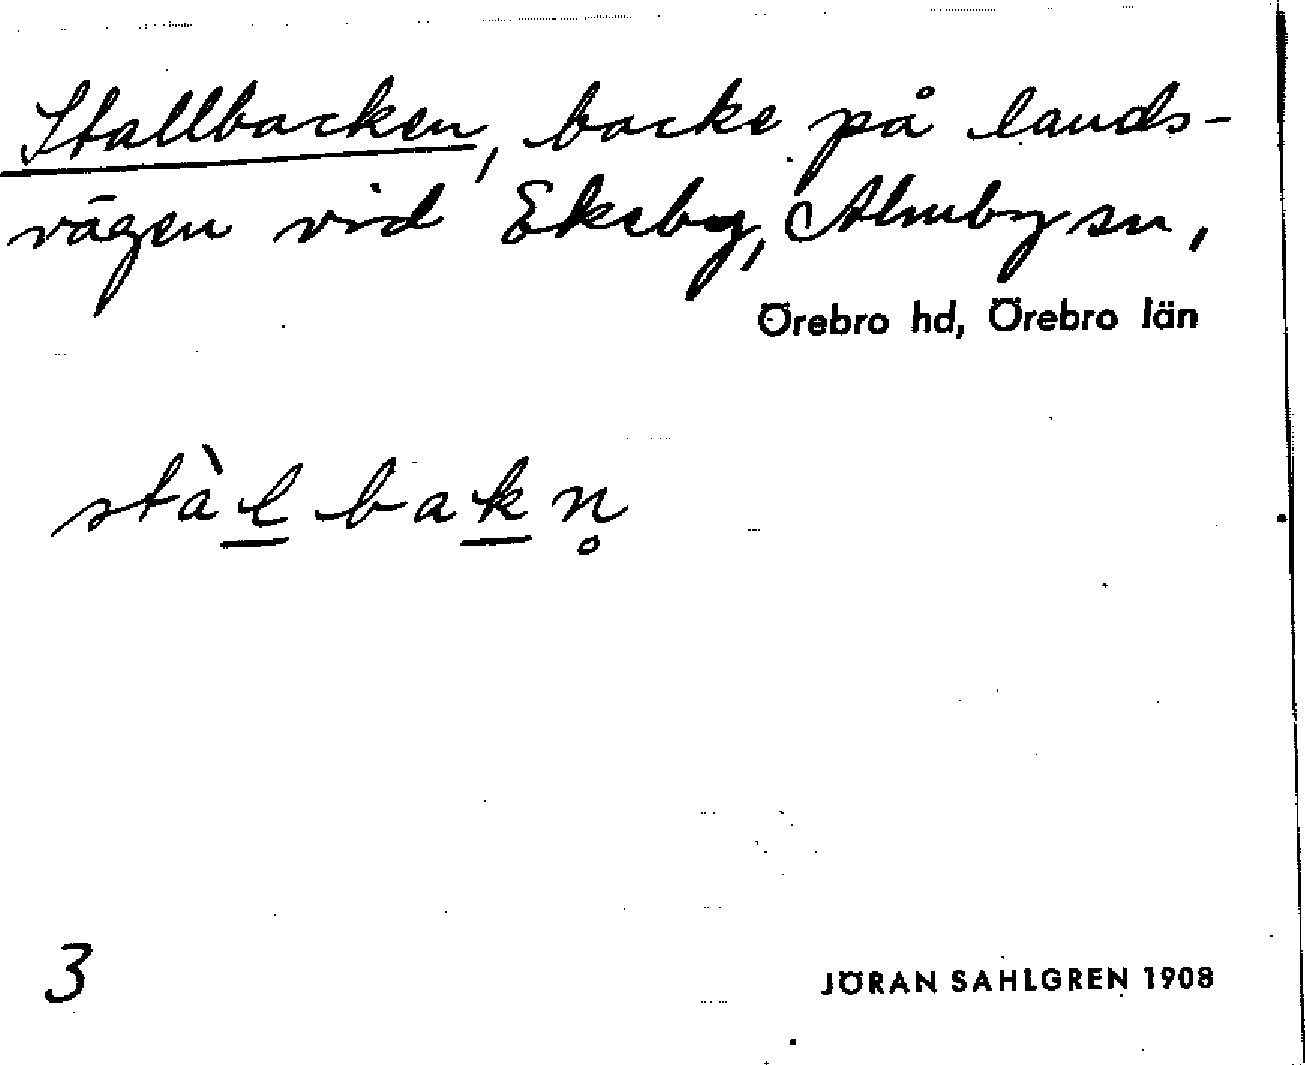 Stallbacken, backe på lands-
vägen vid Ekeby, Almby sn,
Örebro hd, Örebro län
stàl̲bak̲n̥
3
JÖRAN SAHLGREN 1908